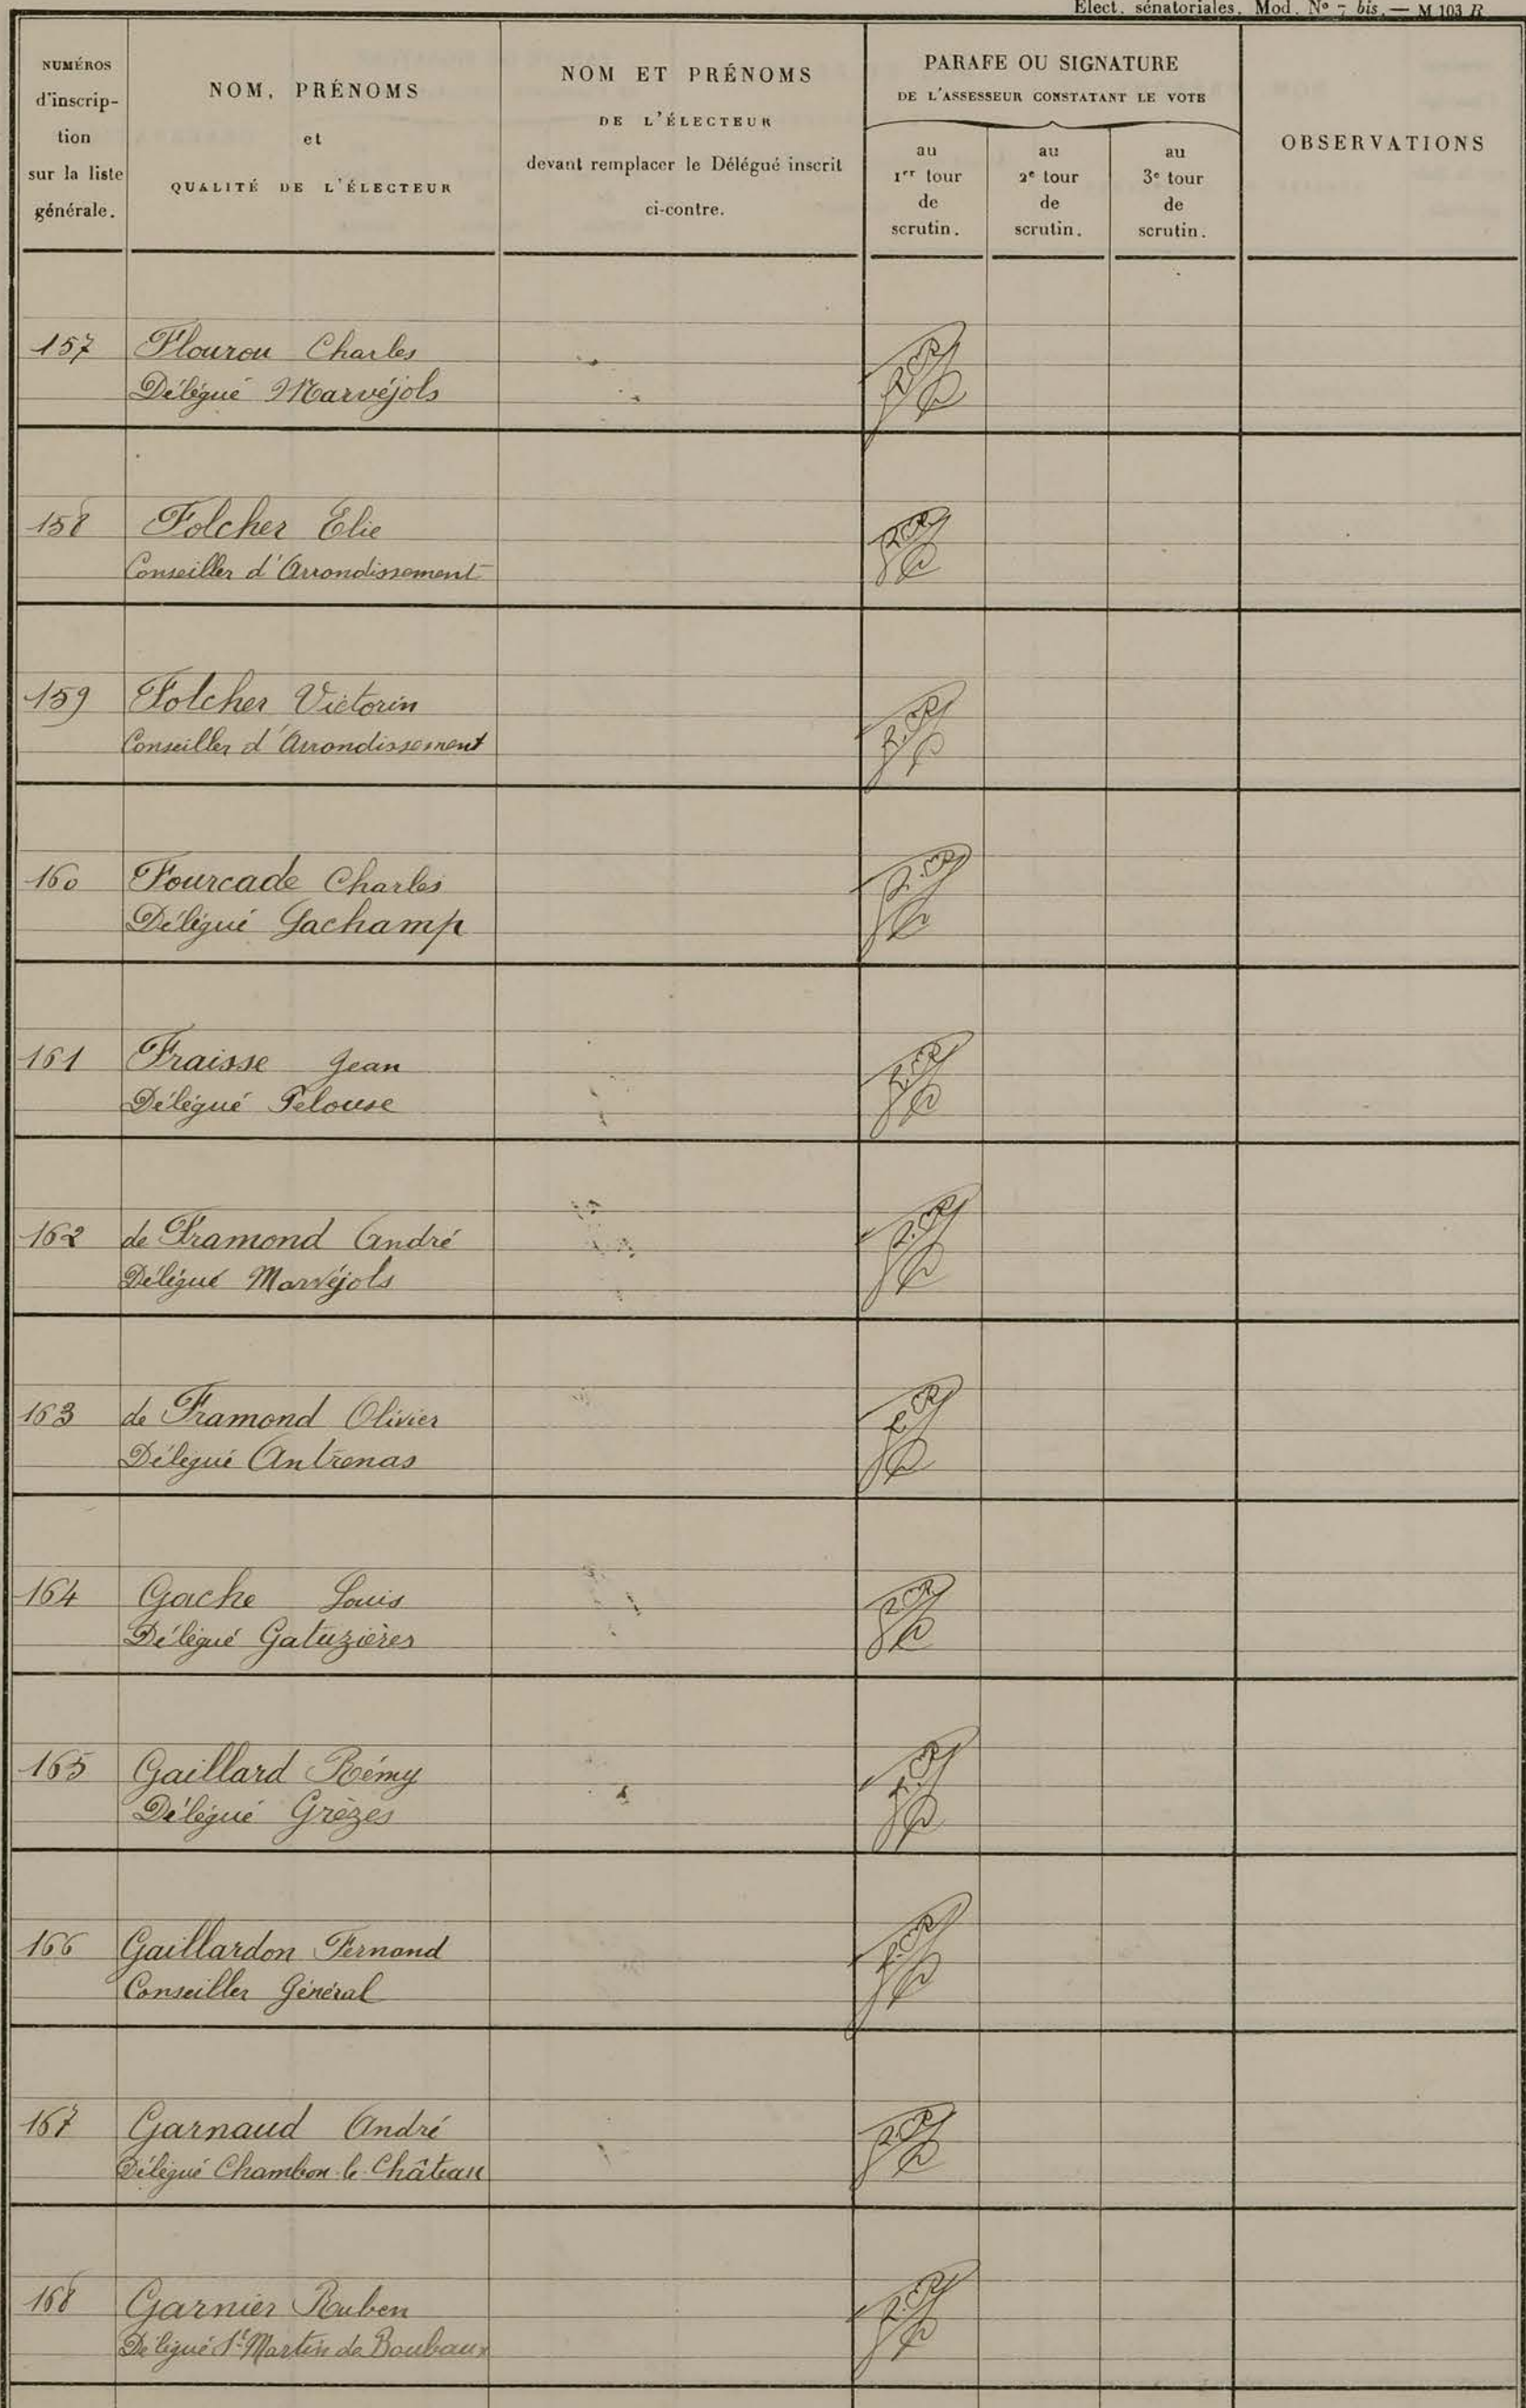 Elect. sénatoriales. Mod. Nº 7 bis. — M 103 R
NUMÉROS
d'inscrip-
tion
sur la liste
générale.
NOM, PRÉNOMS
et
QUALITÉ DE L'ÉLECTEUR
NOM ET PRÉNOMS
DE L'ÉLECTEUR
devant remplacer le Délégué inscrit
ci-contre.
PARAFE OU SIGNATURE
DE L'ASSESSEUR CONSTATANT LE VOTE
au
1er tour
de
scrutin.
au
2e tour
de
scrutin.
au
3e tour
de
scrutin.
OBSERVATIONS
157 Flourou Charles
Délégué Marvéjols
158 Folcher Elie
Conseiller d'Arrondissement
159 Folcher Victorin
Conseiller d'Arrondissement
160 Fourcade Charles
Délégué Lachamp
161 Fraisse Jean
Délégué Pelouse
162 de Framond André
Délégué Marvéjols
163 de Framond Olivier
Délégué Antrenas
164 Gache Louis
Délégué Gatuzières
165 Gaillard Rémy
Délégué Grèzes
166 Gaillardon Fernand
Conseiller Général
167 Garnaud André
Délégué Chambon-le-Château
168 Garnier Ruben
Délégué St Martin de Boubaux